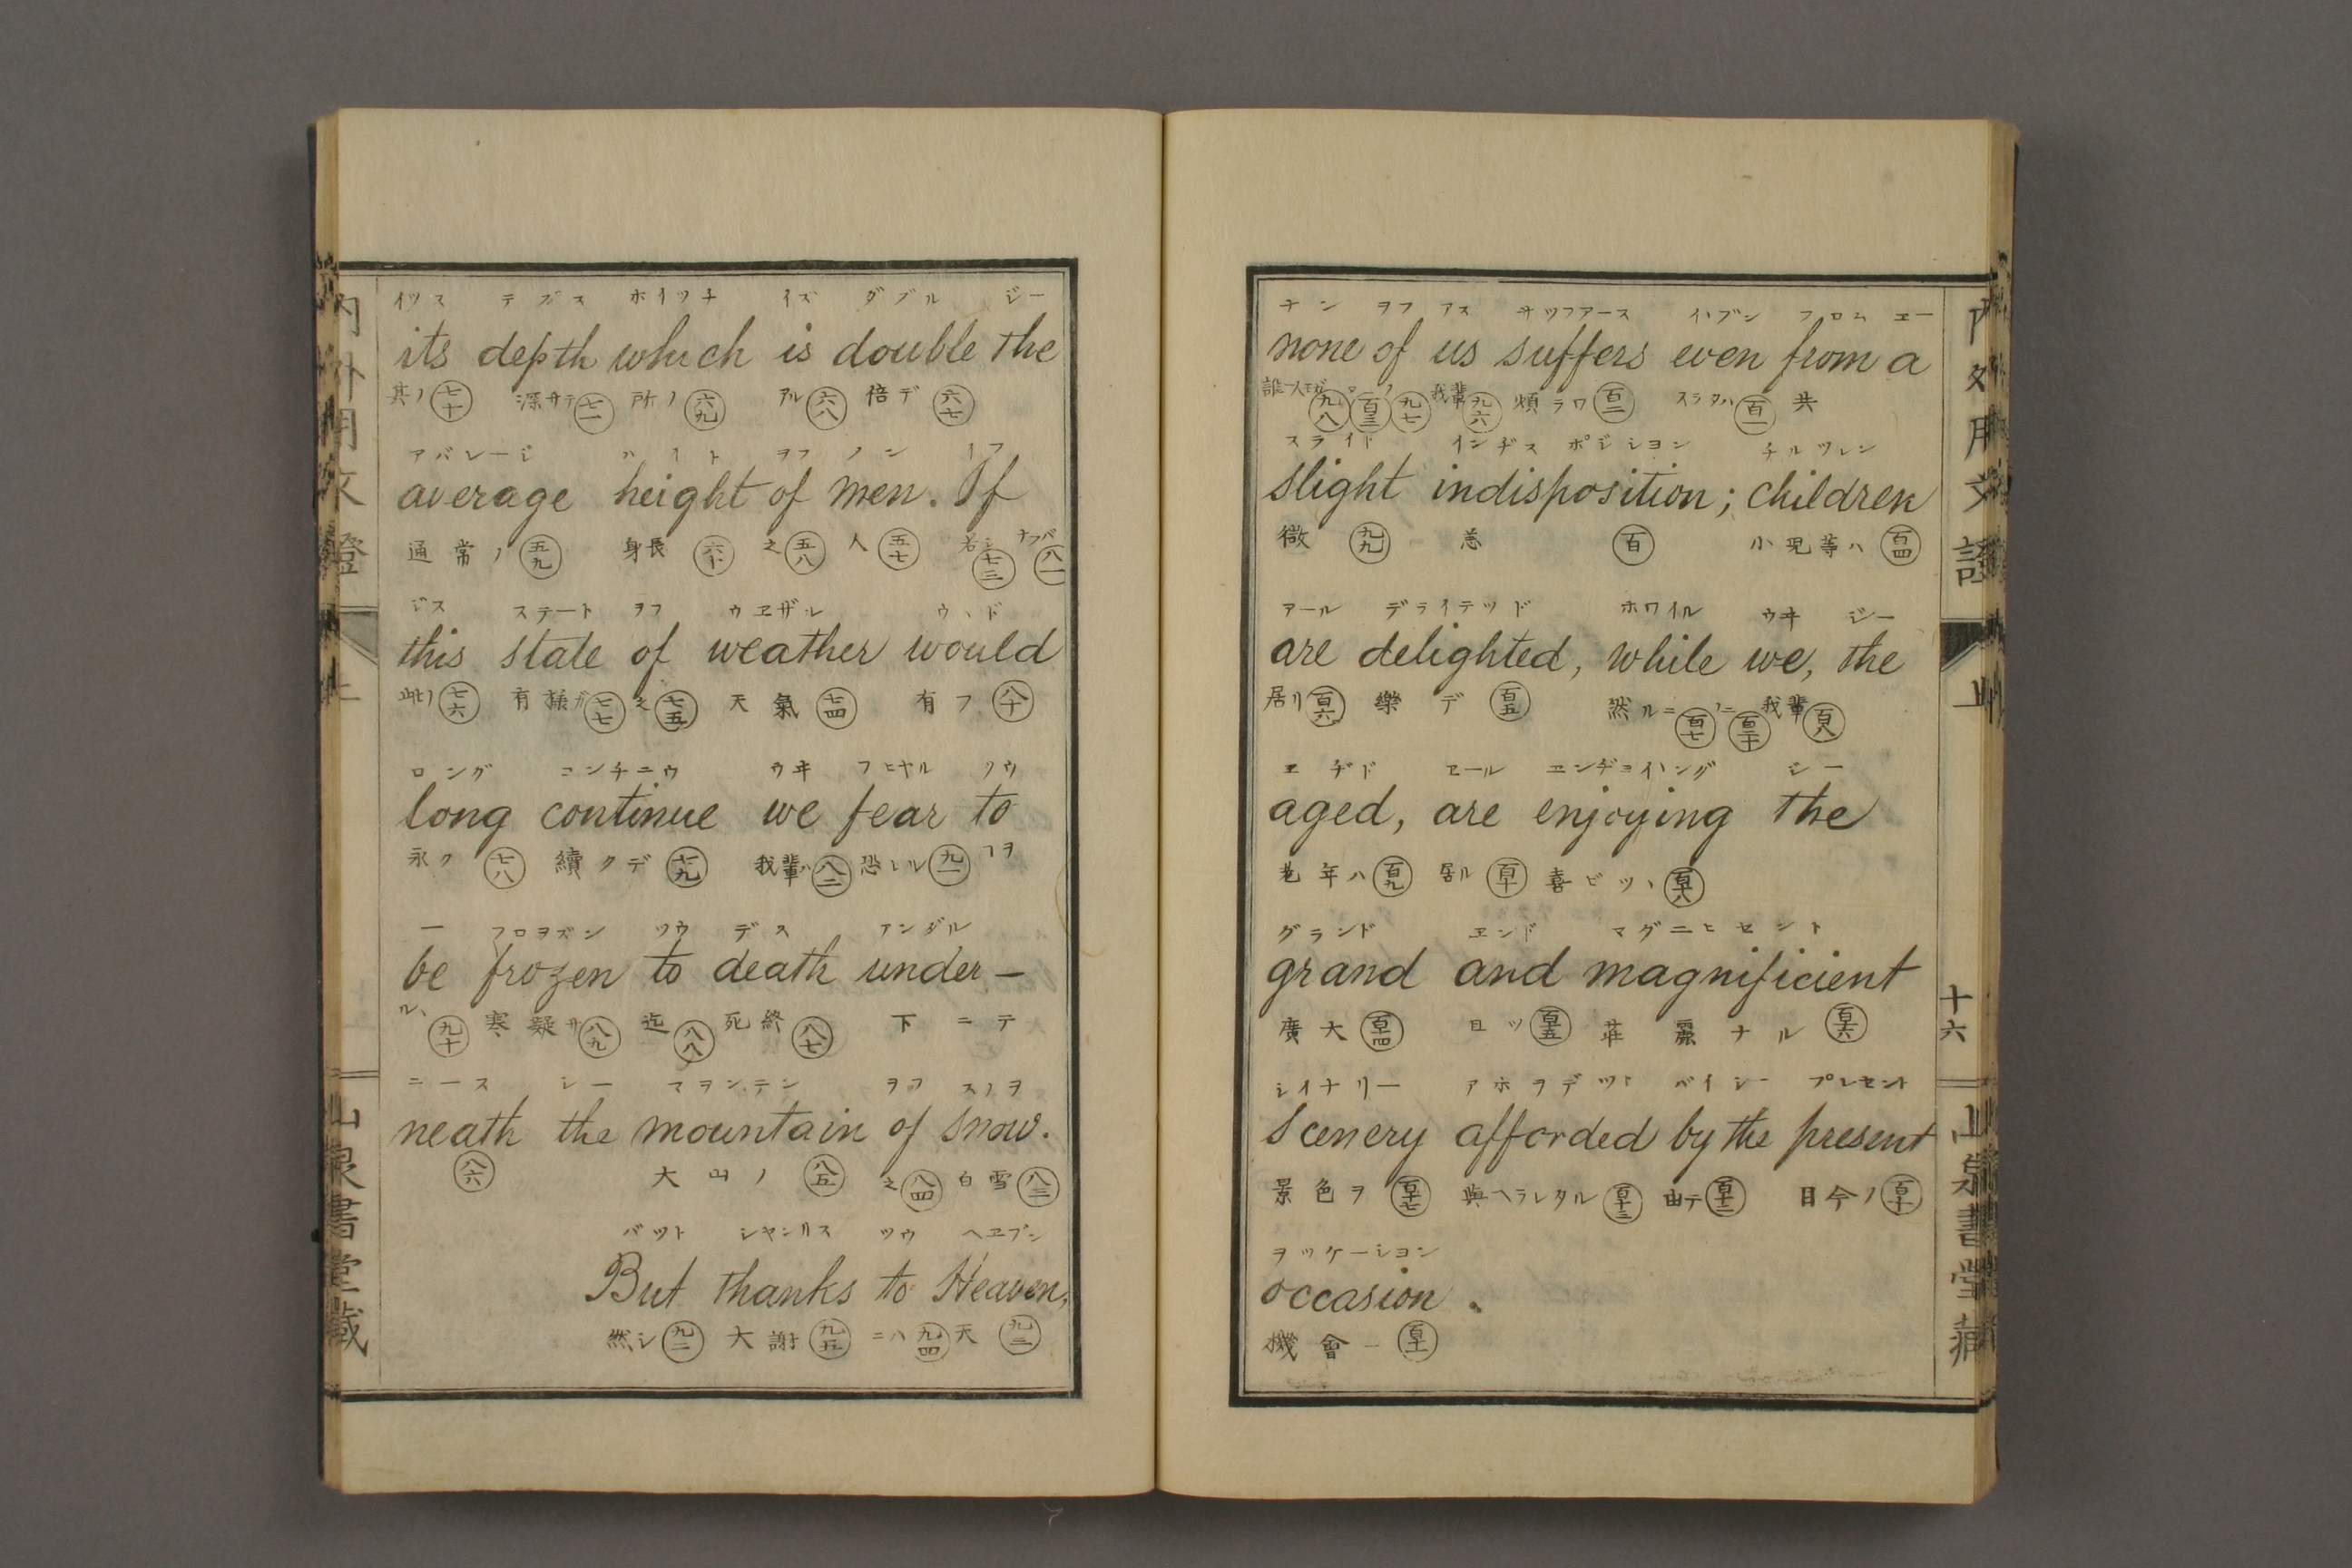 イツス デプス ホイツチ イズ ダブル ジー
its depth which is double the
其ノ 七十 深サデ 七一 所ノ 六九 アル 六八 倍デ 六七
アバレージ ハイト ヲフ メン イフ
average height of men. If
通常ノ 五九 身長 之 五八 人 五七 若シ 七三 八一
ジス ステート ヲフ ウエザル ウード
this state of weather would
此ノ 七六 有様ガ 七七 之 七五 天氣 七四 有フ 八十
ロング コンチニウ ウヰ フヒヤル ツウ
long continue we fear to
永ク 七八 續クデ 七九 我輩ハ 八二 恐レル 九一 ヿヲ
フロヲズン ツウ デス アンダル
be frozen to death under-
九十 寒凝サ 八九 迄 八八 死終 八七 下ニテ
ニース ジー マヲンテン ヲフ スノヲ
neath the mountain of snow.
八六 大山ノ 八五 之 八四 白雪 八三
バツト シヤンクス ツウ ヘエブン
But thanks to Heaven,
然シ 九二 大謝 九五 ニハ 九四 天 九三
内外用文證 上
山泉書堂藏
ナン ヲフ アス サツフアース イハブン フロム エー
none of us suffers even from a
九八 百三 九七 我輩 九六 煩ラワ 百二 スラヲハ 百一 共
スライト インヂス ポジシヨン チルヅレン
slight indisposition; children
微 九九 恙 百 小児等ハ 百四
アール デライテツド ホワイル ウヰ ジー
are delighted, while we, the
居リ 百六 樂デ 百五 然ルニ 百七 我輩 百八
エヂド エール エンヂヨイハング ジー
aged, are enjoying the
老年ハ 百九 居ル 喜ビツヽ
グランド エンド マグニヒセント
grand and magnificient
廣大 且ツ 荘麗ナル
シイナリー アホヲデツト バイ ジー プレセント
Scenery afforded by the present
景色ヲ 與ヘラレタル 由テ 目今ノ
ヲツケーシヨン
occasion.
機會
内外用文證 上
十六
山泉書堂藏